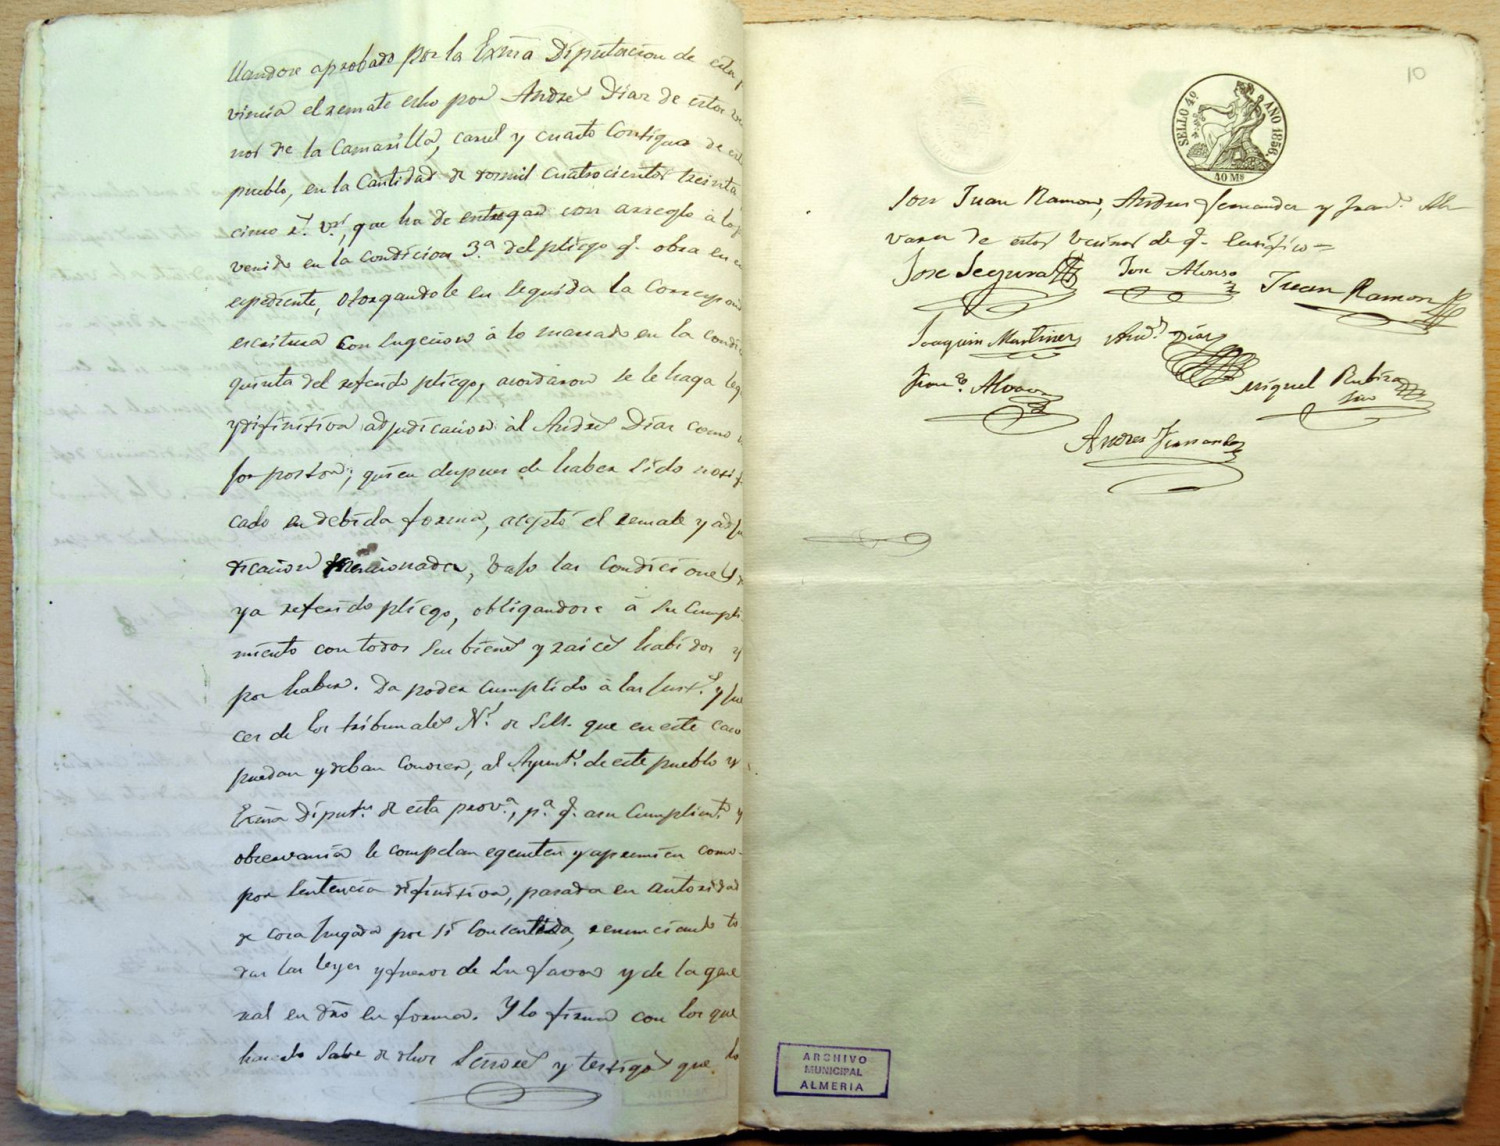 llandose aprobado por la Exma Diputacion de esta p
vincia el remate echo por Andres Diaz de estos ve
nos de la Camarilla, carsel y cuarto Contiguo de est
pueblo, en la Cantidad de dosmil cuatrocientos treinta
cinco r.s v.n, que ha de entregar con arreglo á lo p
venido en la condicion 3.ª del pliego q.e obra en e
espediente, otorgandole en seguida la Correspond
escritura con sugecion á lo marcado en la condic
quinta del referido pliego, acordaron se le haga leg
y difinitiva adjudicacion ál Andres Diaz como m
jor postor; quien despues de haber sido notifi
cado en debida forma, aceptó el remate y adju
dicacion mencionada, bajo las Condiciones d
ya referido pliego, obligandose á su Cumpli
miento con todos sus bienes y raices habidos y
por haber. Da poder cumplido á las Just.s y jue
ces de los tribunales N.s de S.M. que en este caso
puedan y deban conocer, al Ayunt.o de este pueblo y
Exma Diput.n de esta prov.a, p.a q.e a su Cumplim.to y
observancia le compelan egecuten y apremien como
por Sentencia difinitiva, pasada en autoridad
de cosa jusgada por sí consentida, renunciando to
das las leyes y fueros de su favor y de la gene
ral en dro en forma. Y lo firma con los que
hacerlo Saben de dhos Señores y testigos que lo
10
SELLO 4º AÑO 1856.
40 Ms
son Juan Ramon, Andres Fernandez y Fran.co Al-
varez de estos vecinos de q.e Certifico=
Jose Segura
Jose Alonso
Juan Ramon
Joaquin Martinez
And.s Diaz
Fran.co Alvarez
Miguel Rubira
Srio
Andres Fernandez
ARCHIVO
MUNICIPAL
ALMERIA